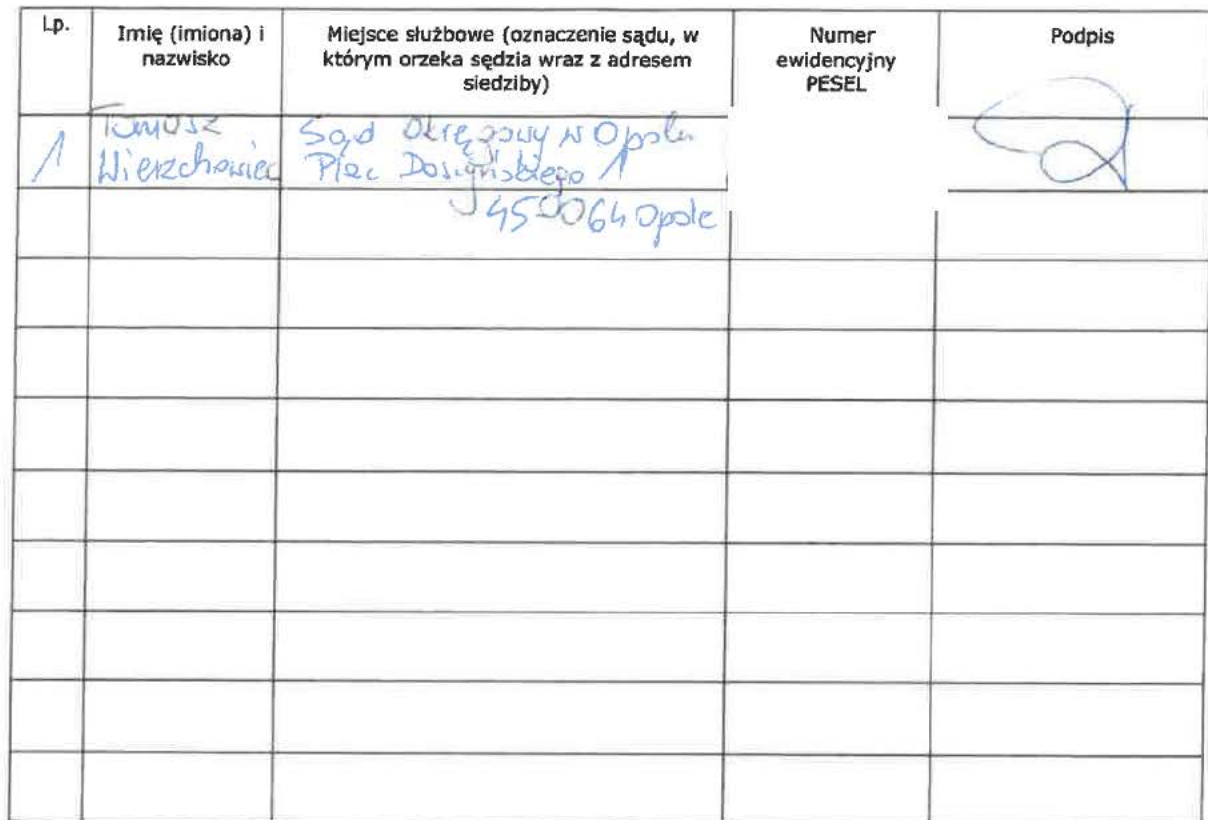 Lp.
Imię (imiona) i
nazwisko
Miejsce służbowe (oznaczenie sądu, w
którym orzeka sędzia wraz z adresem
siedziby)
Numer
ewidencyjny
PESEL
Podpis
1
Wierzchowiec
Sąd Okręgowy w Opolu
Plac Daszyńskiego 1
45-064 Opole